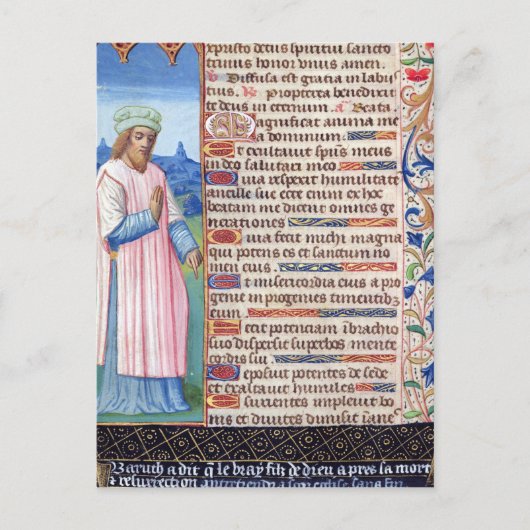 xpisto deus spiritui sancto
trinus honor unus amen.
℣ Diffusa est gratia in labiis
tuis. ℟ propterea benedixit
te deus in eternum a Beata
Magnificat anima me
a dominum.
Et exultavit spūs meus
in deo salutari meo
Quia respexit humilitatē
ancille sue ecce enim ex hoc
beatam me dicent omnes ge
nerationes
Quia fecit michi magna
qui potens es et sanctum no
men eius.
Et misericordia eius a pro
genie i progenies timentibus
eum
Fecit potenciam ī brachio
suo dispersit superbos mente
cordis sui
Deposuit potentes de sede
et exaltavit humiles
Esurientes implevit bo
nis et divites dimisit inane
Baruch a dit q̄ le vray filz de dieu apres sa mort
& resurrection